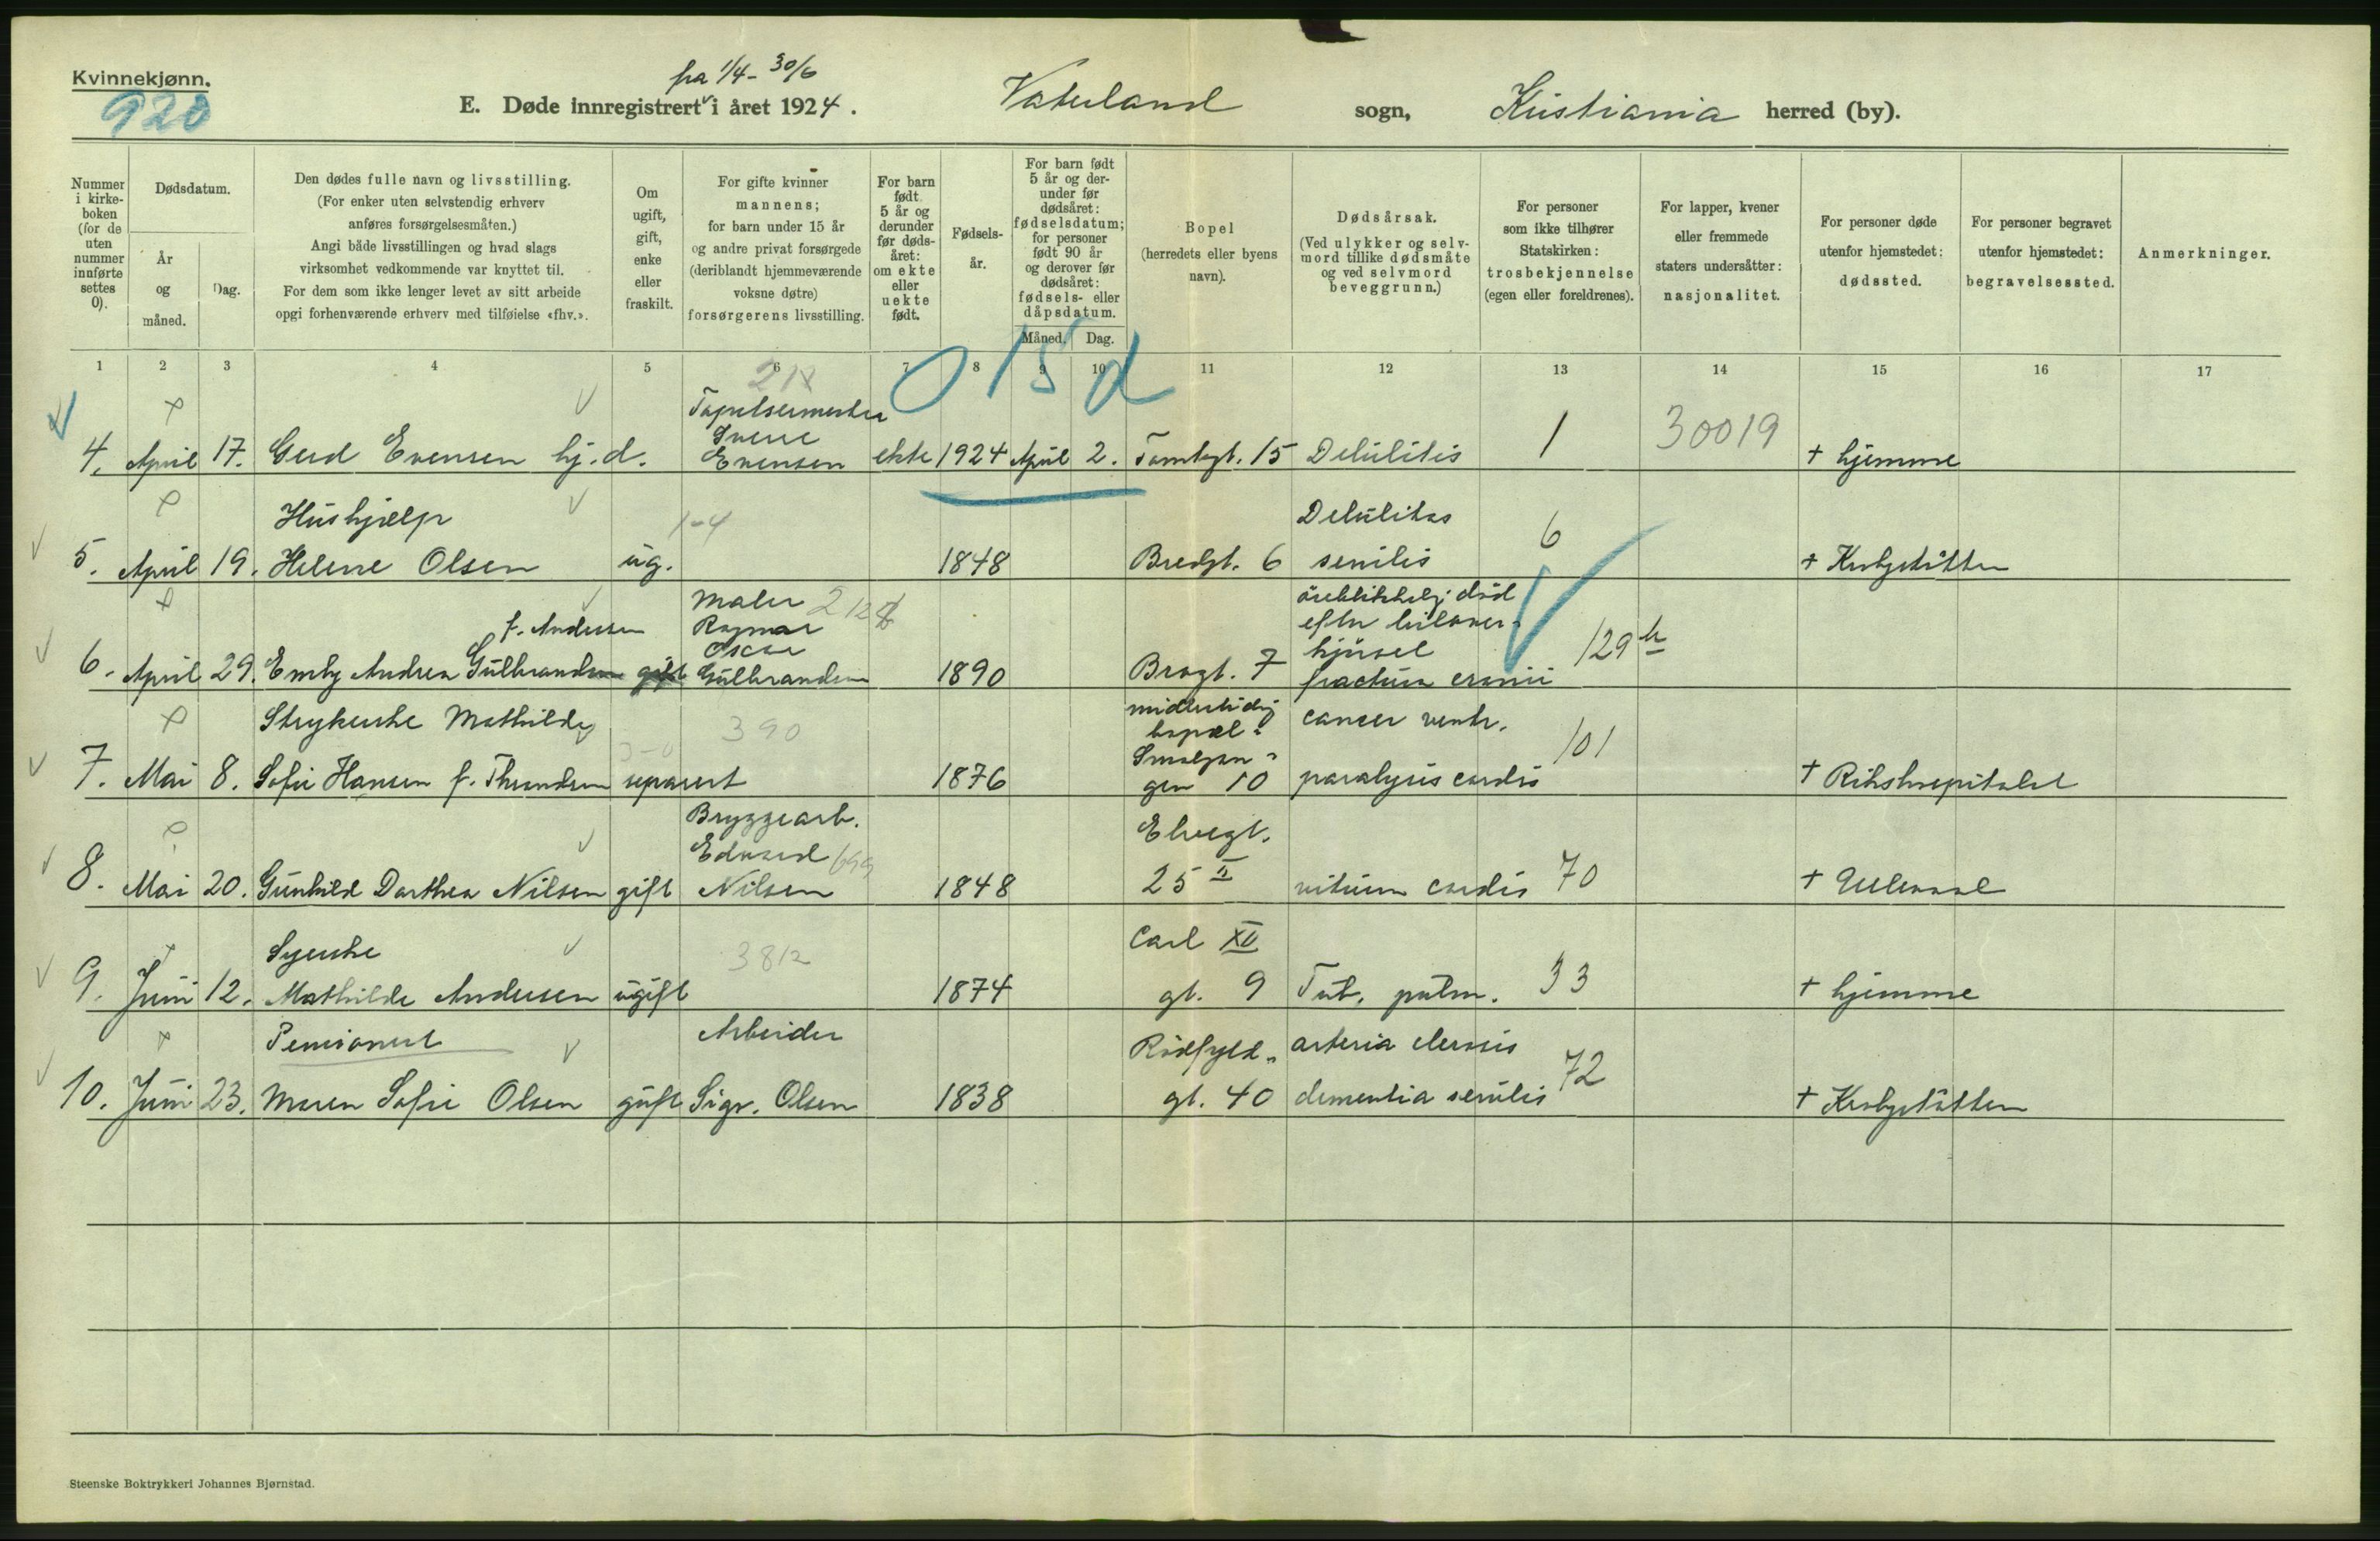 Kvinnekjønn.
920
fra 1/4 - 30/6
E. Døde innregistrert i året 1924.
Vaterland sogn, Kristiania herred (by).
Nummer i kirke-boken (for de uten nummer innførte settes 0).
Dødsdatum.
År og måned.
Dag.
Den dødes fulle navn og livsstilling.
(For enker uten selvstendig erhverv
anføres forsørgelsesmåten.)
Angi både livsstillingen og hvad slags
virksomhet vedkommende var knyttet til.
For dem som ikke lenger levet av sitt arbeide
opgi forhenværende erhverv med tilføielse «fhv.».
Om ugift, gift, enke eller fraskilt.
For gifte kvinner
mannens;
for barn under 15 år
og andre privat forsørgede
(deriblandt hjemmeværende
voksne døtre)
forsørgerens livsstilling.
For barn født 5 år og derunder før døds-året: om ekte eller uekte født.
Fødsels-år.
For barn født 5 år og der-under før dødsåret: fødselsdatum; for personer født 90 år og derover før dødsåret: fødsels- eller dåpsdatum.
Måned. Dag.
Bopel
(herredets eller byens navn).
Dødsårsak.
(Ved ulykker og selv-mord tillike dødsmåte og ved selvmord beveggrunn.)
For personer
som ikke tilhører
Statskirken:
trosbekjennelse
(egen eller foreldrenes).
For lapper, kvener
eller fremmede
staters undersåtter:
nasjonalitet.
For personer døde
utenfor hjemstedet:
dødssted.
For personer begravet
utenfor hjemstedet:
begravelsessted.
Anmerkninger.
1 2 3 4 5 6 7 8 9 10 11 12 13 14 15 16 17
0 15 d
Tapetsermester
Sverre
4. April 17. Gerd Evensen hj. d. Evensen ekte 1924 April 2. Tomtegt. 15 Debilitis 1 30019 + hjemme
Hushjælp 1-4 Debilitas 6
5. April 19. Helene Olsen ug. 1848 Bredgt. 6 senilis + Krohgstøtten
Maler
f. Andersen Ragnar
Oscar
øieblikkelig død
efter bilover-
kjørsel
6. April 29. Emly Andrea Gulbrandsen gift Gulbrandsen 1890 Brogt. 7 fractura cranii 129
Strykerske Mathilde 390
midlertidig bopæl:
cancer ventr. 101
7. Mai 8. Sofie Hansen f. Throndsen separert 1876 Smalgan-
gen 10 paralysis cordis + Rikshospitalet
Bryggearb.
Edvard
Elvegt.
8. Mai 20. Gunhild Dorthea Nilsen gift Nilsen 1848 25 II vitium cordis 70 + Ullevaal
Syerske 3812 Carl XII
9. Juni 12. Mathilde Andersen ugift 1874 gt. 9 Tub. pulm. 33 + hjemme
Pensionert Arbeider Rødfyld- arteria sclerosis 72
10. Juni 23. Maren Sofie Olsen gift Sigv. Olsen 1838 gt. 40 dementia senilis + Krohgstøtten
Steenske Boktrykkeri Johannes Bjørnstad.